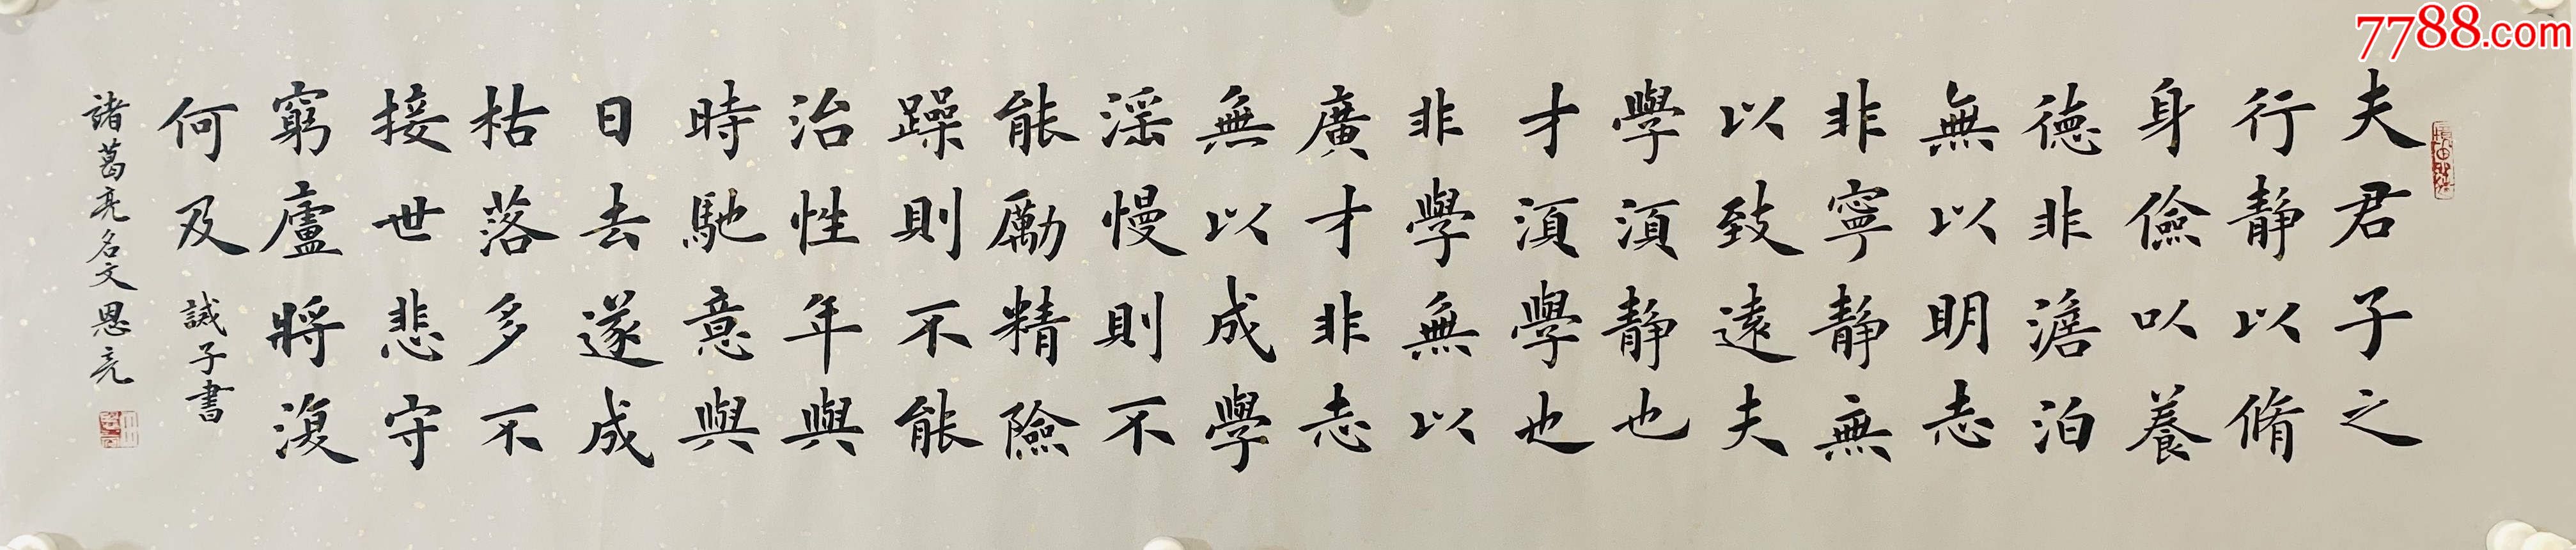 夫君子之
行静以脩
身儉以養
德非澹泊
無以明志
非寧静無
以致遠夫
學須静也
才須學也
非學無以
廣才非志
無以成學
淫慢則不
能勵精險
躁則不能
治性年與
時馳意與
日去遂成
枯落多不
接世悲守
窮廬將復
何及 誡子書
諸葛亮名文恩亮
7788.com